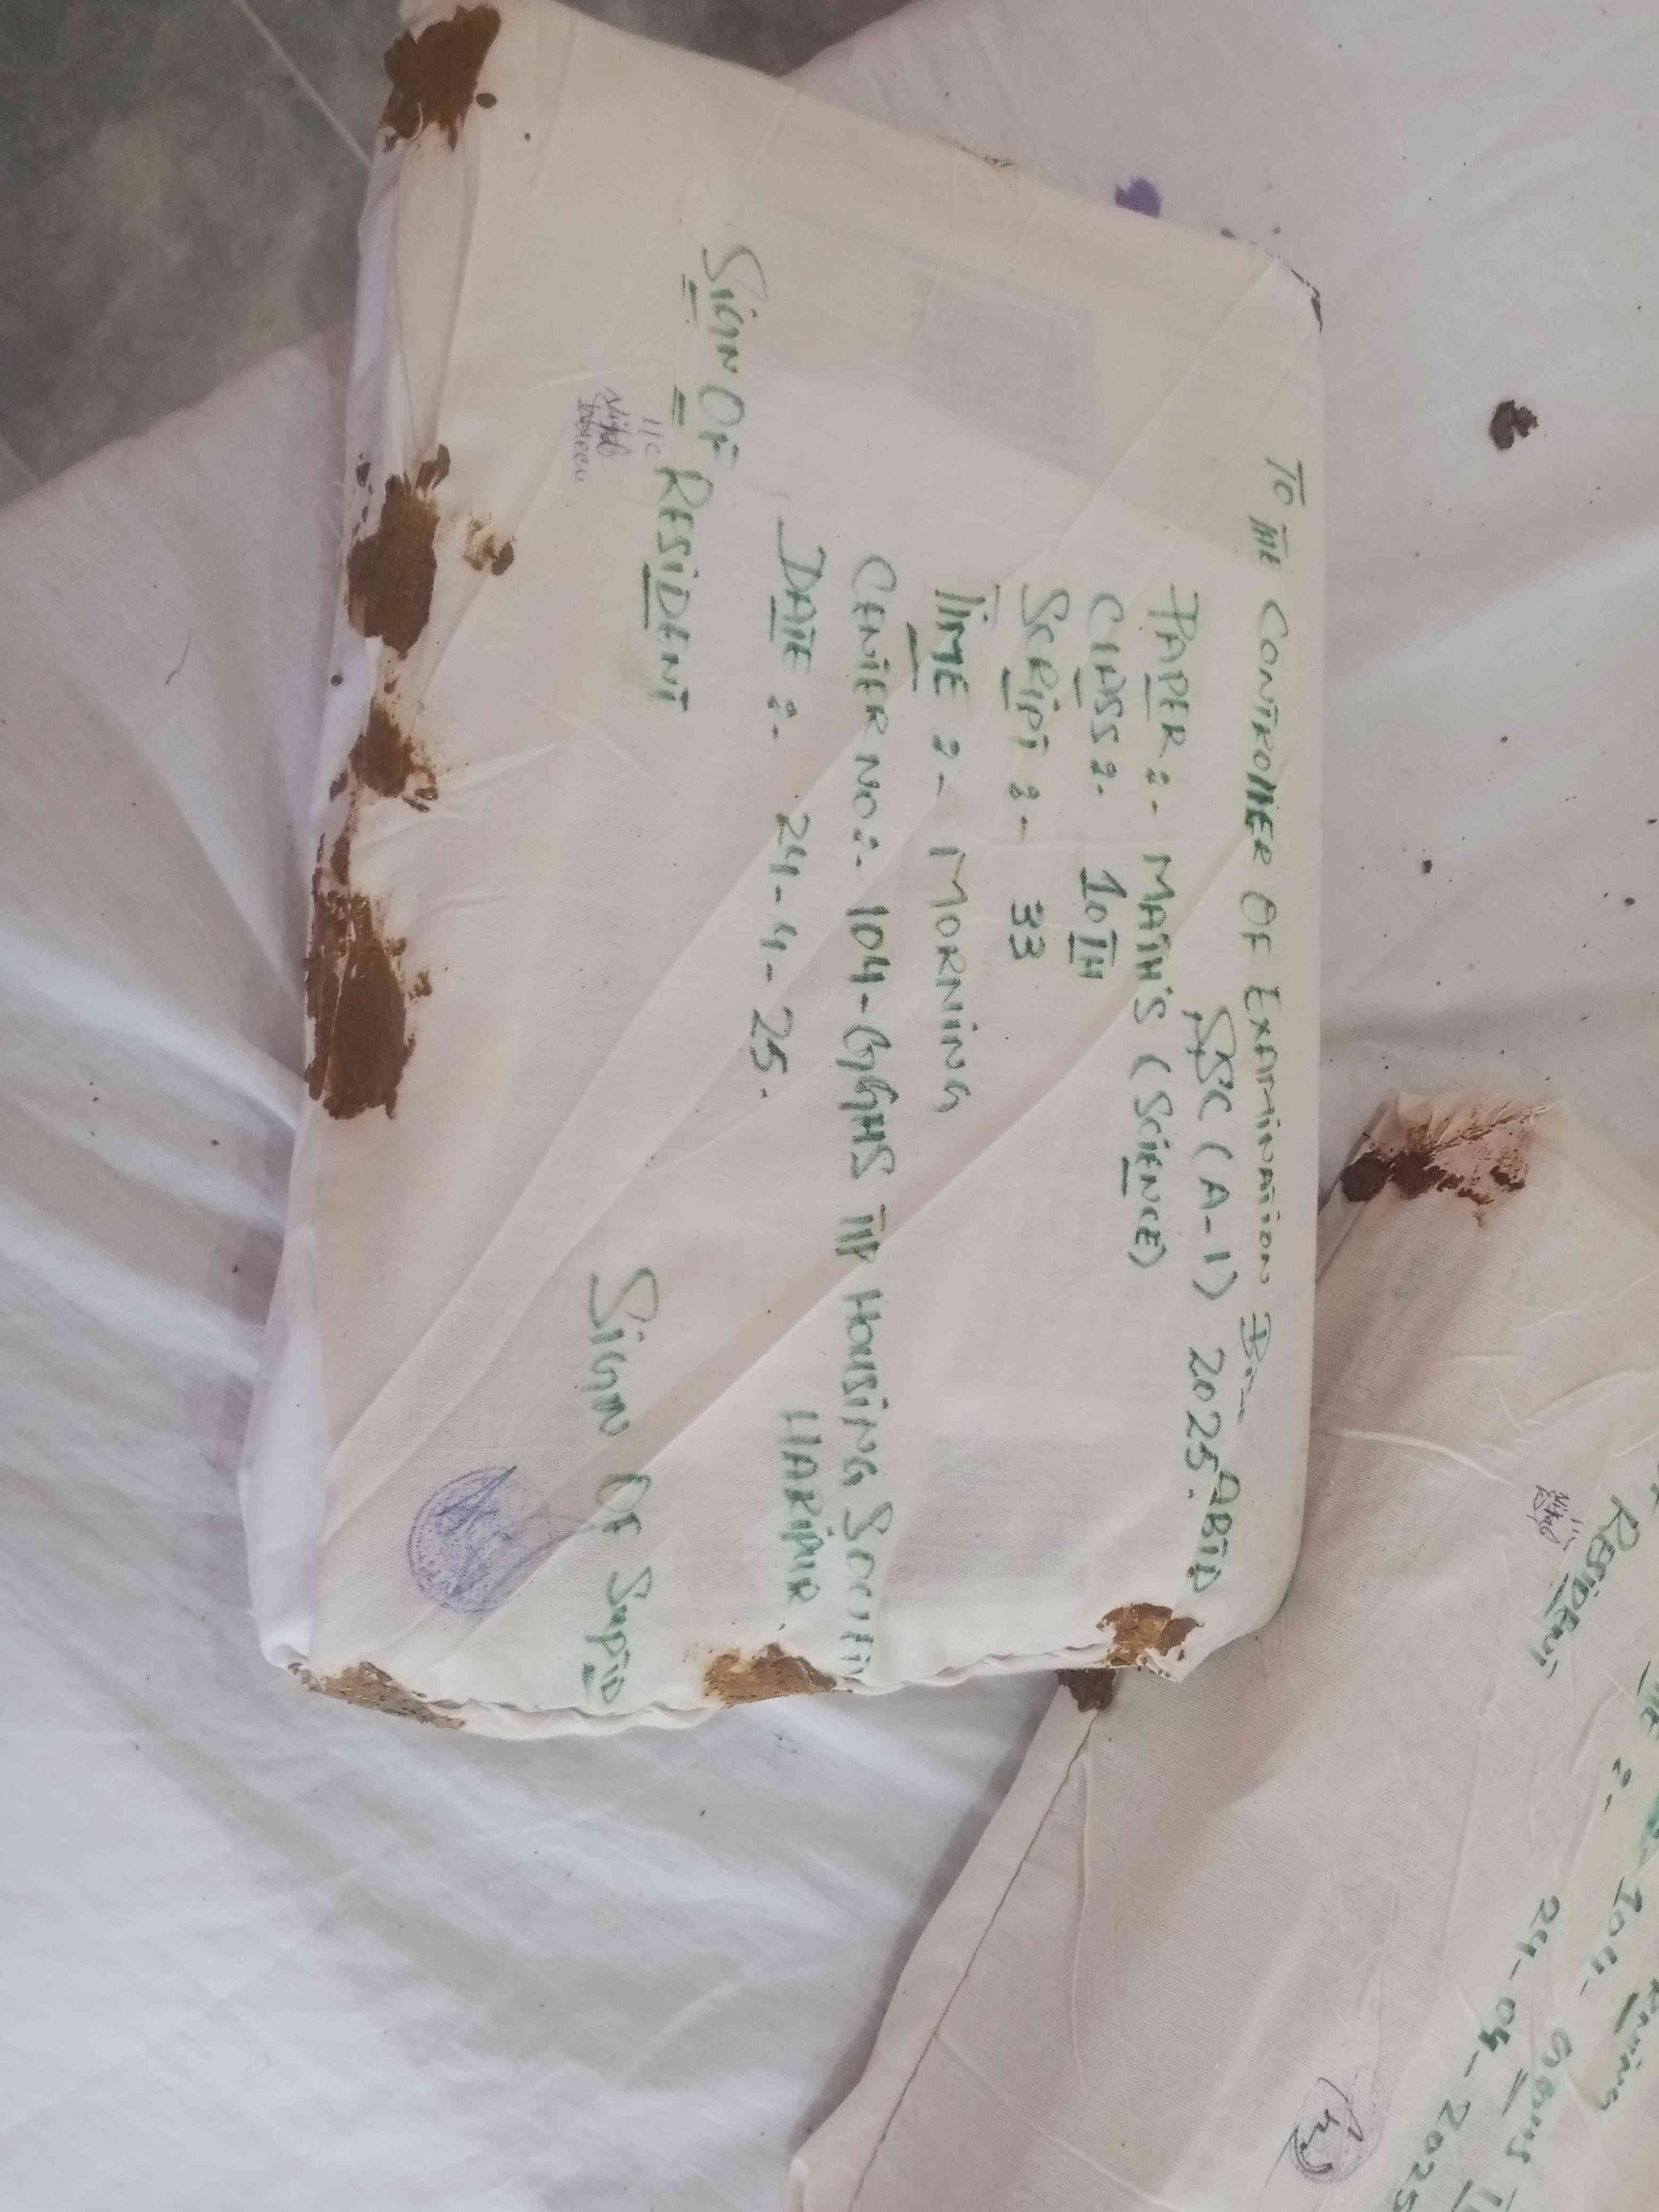 TO THE CONTROllER OF EXAMINATION ABTD
SSC (A-1) 2025.
PAPER :- MATH'S (SCIENCE)
ClASS :- 10TH
SCRIPT :- 33
TIME :- MORNING
CENTER NO:- 104-GGHS TIP HOUSING SOCIETY
HARIPUR
DATE :- 24-4-25.
SIGN OF RESIDENT
SIGN OF SUPTD
RESIDENT
:- 104-
24-04-2025